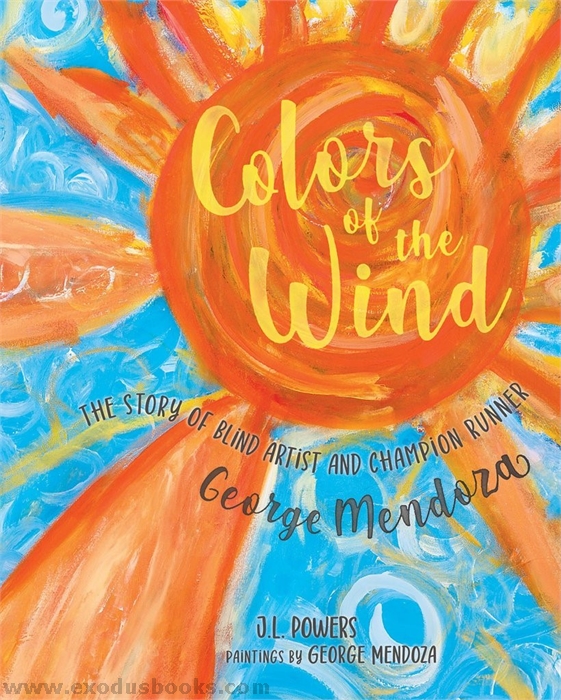 Colors
of the
Wind
THE STORY OF BLIND ARTIST AND CHAMPION RUNNER
George Mendoza
J.L. POWERS
PAINTINGS BY GEORGE MENDOZA
www.exodusbooks.com